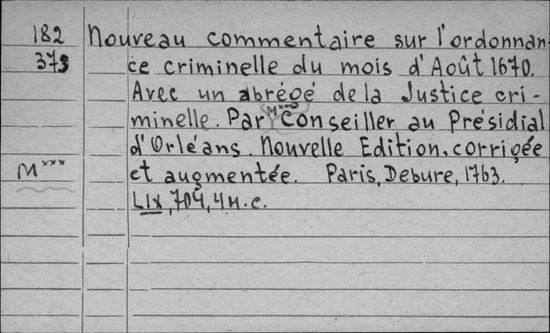 182 Nouveau commentaire sur l'ordonnan-
373 ce criminelle du mois d'Août 1670.
Avec un abrégé de la Justice cri-
minelle. Par M*** Conseiller au Présidial
d'Orléans. Nouvelle Edition, corrigée
M*** et augmentée. Paris, Debure, 1763.
LIX, 704, 4 н.с.